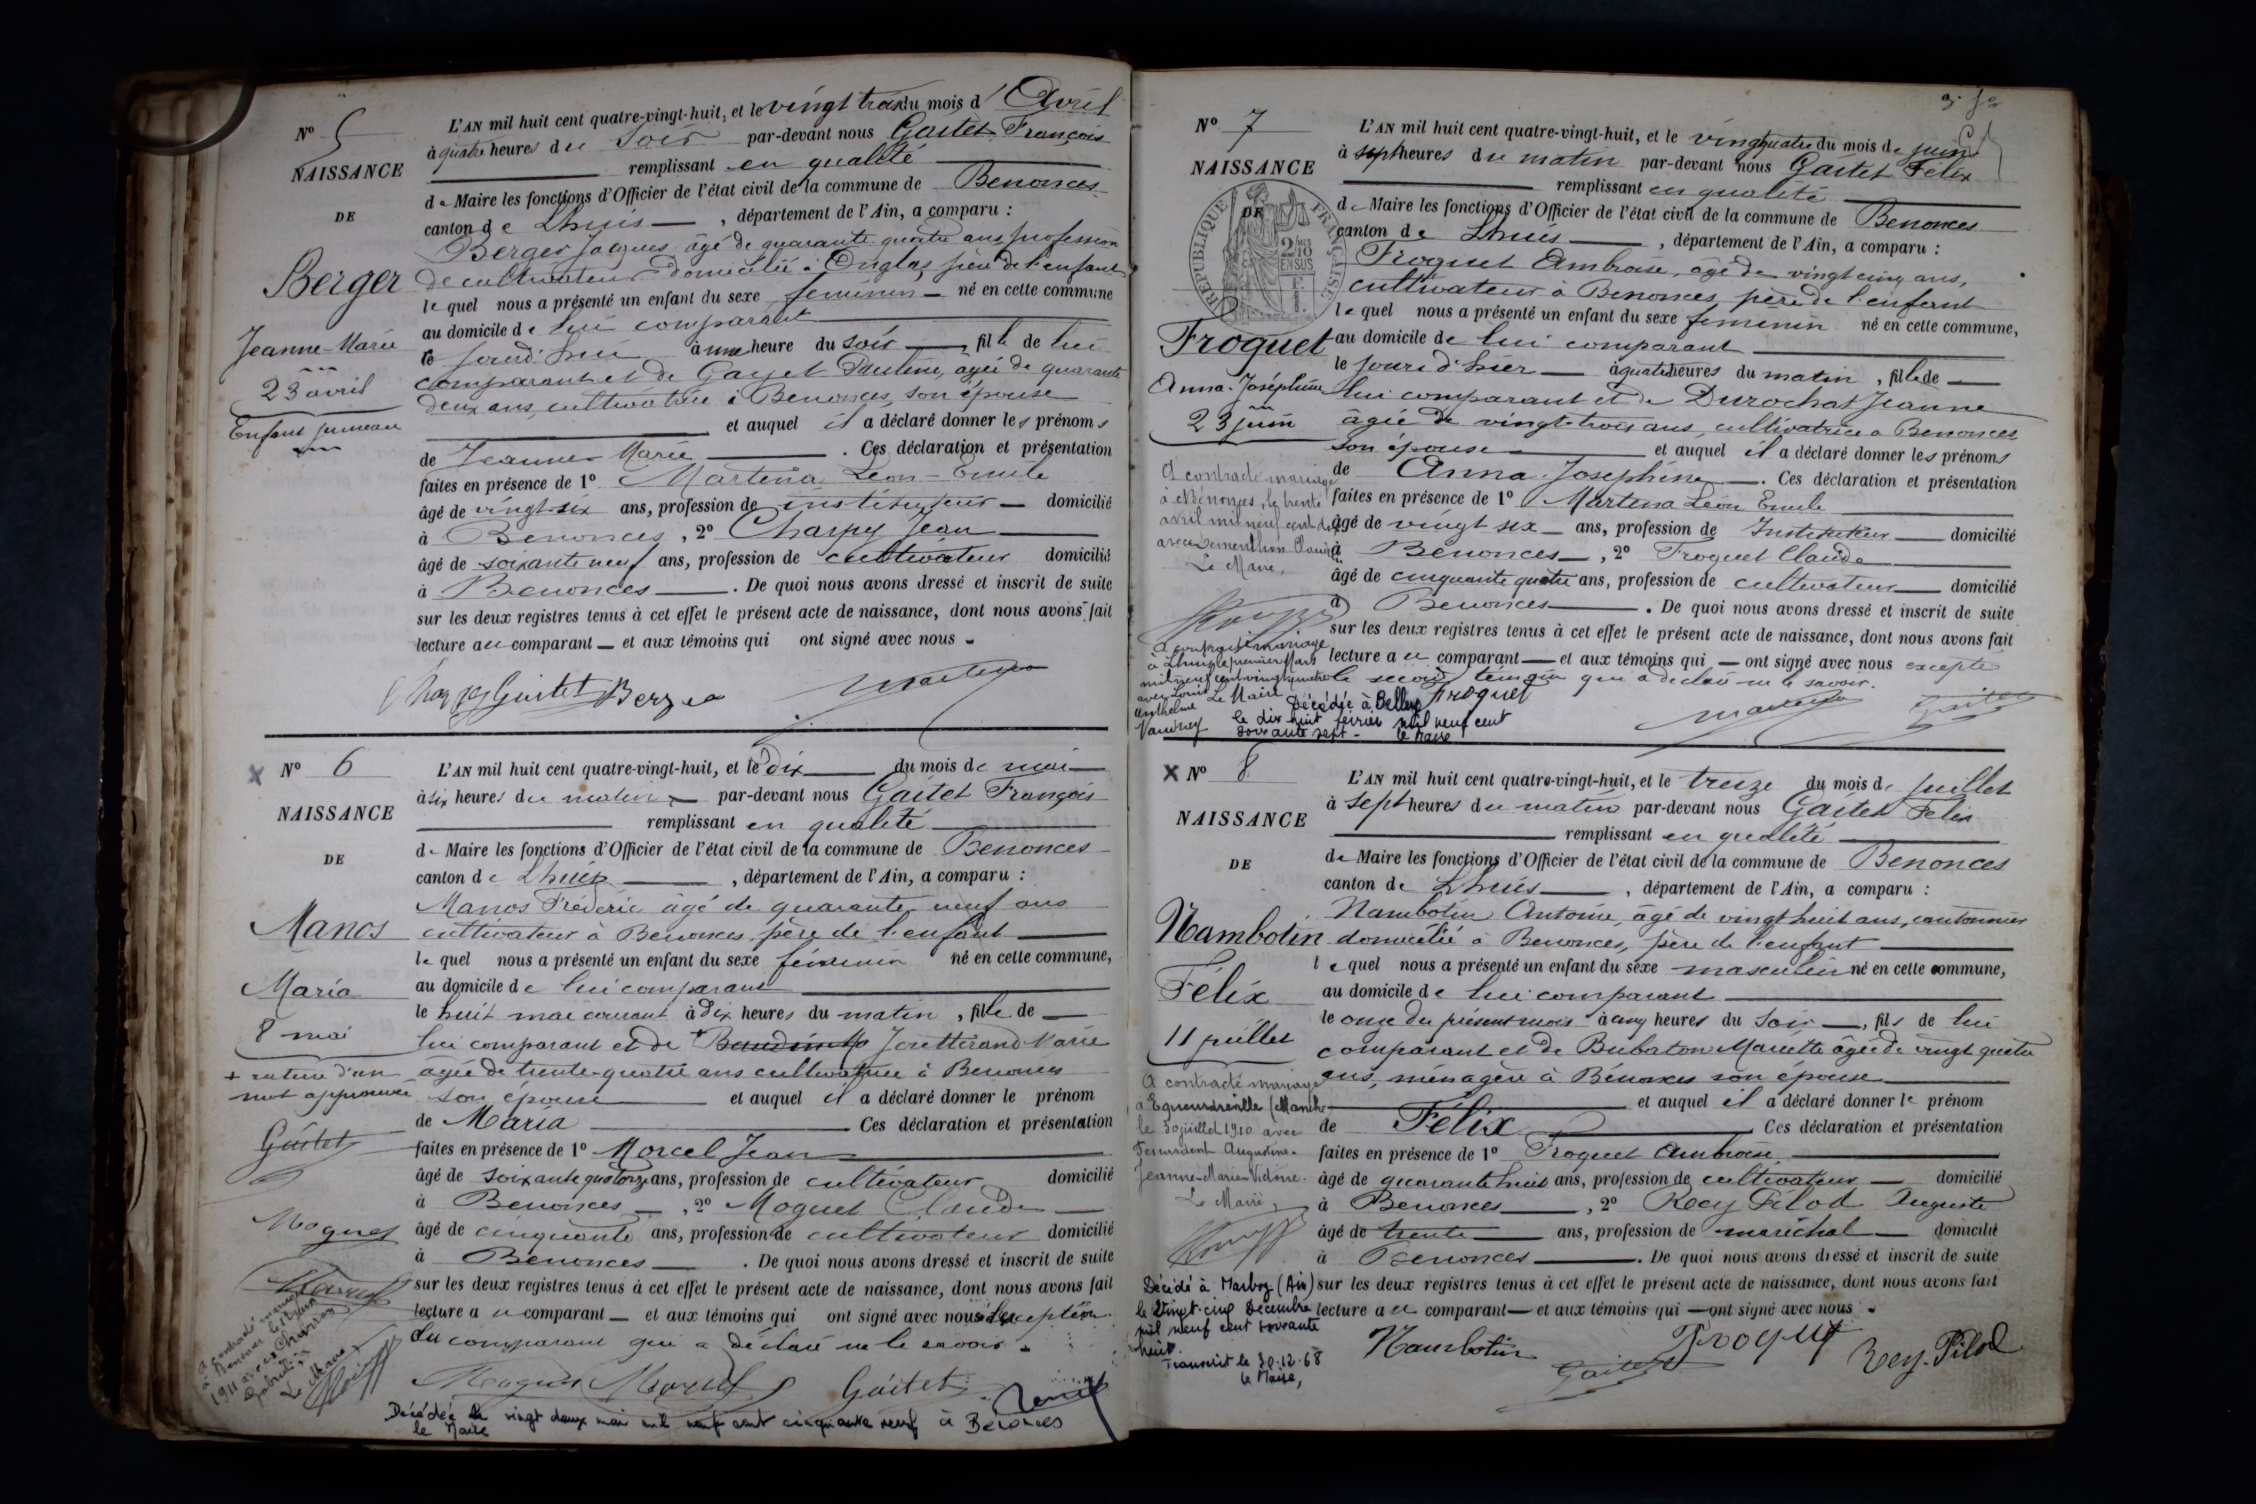 Nº 5
NAISSANCE
DE
Berger
Jeanne-Marie
23 avril
Enfant jumeau
L'AN mil huit cent quatre-vingt-huit, et le vingt trois du mois d'Avril
à quatre heures du soir par-devant nous Gaitet François
remplissant en qualité
de Maire les fonctions d'Officier de l'état civil de la commune de Benonces
canton de Lhuis, département de l'Ain, a comparu :
Berger Jacques âgé de quarante quatre ans, profession
de cultivateur domicilié à Onglas, père de l'enfant
lequel nous a présenté un enfant du sexe féminin né en cette commune
au domicile de lui comparant
le jourd'hui à une heure du soir, fille de lui
comparant et de Gayet Pauline, agée de quarante
deux ans, cultivatrice à Benonces, son épouse
et auquel il a déclaré donner les prénoms
de Jeanne Marie. Ces déclaration et présentation
faites en présence de 1º Martina Léon-Emile
âgé de vingt-six ans, profession de instituteur domicilié
à Benonces, 2º Charpy Jean
âgé de soixante neuf ans, profession de cultivateur domicilié
à Benonces. De quoi nous avons dressé et inscrit de suite
sur les deux registres tenus à cet effet le présent acte de naissance, dont nous avons fait
lecture au comparant et aux témoins qui ont signé avec nous
Charpy Gaitet Berger
Nº 6
NAISSANCE
DE
Manos
Maria
8 mai
+ rature d'un
mot approuvée
Gaitet
Moquet
L'AN mil huit cent quatre-vingt-huit, et le dix du mois de mai
à six heures du matin, par-devant nous Gaitet François
remplissant en qualité
de Maire les fonctions d'Officier de l'état civil de la commune de Benonces
canton de Lhuis, département de l'Ain, a comparu :
Manos Fréderic âgé de quarante neuf ans
cultivateur à Benonces, père de l'enfant
lequel nous a présenté un enfant du sexe féminin né en cette commune,
au domicile de lui comparant
le huit mai courant à dix heures du matin, fille de
lui comparant et de + Marie
agée de trente-quatre ans cultivatrice à Benonces
son épouse et auquel il a déclaré donner le prénom
de Maria Ces déclaration et présentation
faites en présence de 1º Morcel Jean
âgé de soixante quatorze ans, profession de cultivateur domicilié
à Benonces, 2º Moquet Claude
âgé de cinquante ans, profession de cultivateur domicilié
à Benonces. De quoi nous avons dressé et inscrit de suite
sur les deux registres tenus à cet effet le présent acte de naissance, dont nous avons fait
lecture au comparant et aux témoins qui ont signé avec nous à l'exception
du comparant qui a déclaré ne le savoir.
Gaitet
a contracté mariage
à Benonces le
1911 avec
Le Maire
Décédée le vingt deux mai mil neuf cent cinquante neuf à Bénonces
le Maire
Nº 7
NAISSANCE
DE
RÉPUBLIQUE FRANÇAISE
Froquet
Anna-Joséphine
23 juin
L'AN mil huit cent quatre-vingt-huit, et le vingt quatre du mois de juin
à sept heures du matin par-devant nous Gaitet Félix
remplissant en qualité
de Maire les fonctions d'Officier de l'état civil de la commune de Benonces
canton de Lhuis, département de l'Ain, a comparu :
Froquet Ambroise, âgé de vingt cinq ans,
cultivateur à Benonces, père de l'enfant
lequel nous a présenté un enfant du sexe féminin né en cette commune,
au domicile de lui comparant
le jour d'hier à quatre heures du matin, fille de
lui comparant et de Durochat Jeanne
âgée de vingt-trois ans, cultivatrice à Benonces
son épouse et auquel il a déclaré donner les prénoms
de Anna Joséphine. Ces déclaration et présentation
faites en présence de 1º Martina Léon Emile
âgé de vingt six ans, profession de Instituteur domicilié
à Benonces, 2º Froquet Claude
âgé de cinquante quatre ans, profession de cultivateur domicilié
à Benonces. De quoi nous avons dressé et inscrit de suite
sur les deux registres tenus à cet effet le présent acte de naissance, dont nous avons fait
lecture au comparant et aux témoins qui ont signé avec nous excepté
le second témoin qui a déclaré ne le savoir.
Froquet
A contracté mariage
à Bénonces, le trente
avril mil neuf cent
avec
Le Maire,
a contracté mariage
à Lhuis le premier Mars
mil neuf cent vingt quatre
avec Louis
Anthelme
Vaudrey
Le Maire
Décédée à Belley
le dix huit février mil neuf cent
soixante sept. le Maire
Nº 8
NAISSANCE
DE
Nambotin
Félix
11 juillet
L'AN mil huit cent quatre-vingt-huit, et le treize du mois de juillet
à sept heures du matin par-devant nous Gaitet Félix
remplissant en qualité
de Maire les fonctions d'Officier de l'état civil de la commune de Benonces
canton de Lhuis, département de l'Ain, a comparu :
Nambotin Antoine, âgé de vingt huit ans, cantonnier
domicilié à Benonces, père de l'enfant
lequel nous a présenté un enfant du sexe masculin né en cette commune,
au domicile de lui comparant
le onze du présent mois à cinq heures du soir, fils de lui
comparant et de Mariette âgée de vingt quatre
ans, ménagère à Bénonces son épouse
et auquel il a déclaré donner le prénom
de Félix Ces déclaration et présentation
faites en présence de 1º Froquet Ambroise
âgé de quarante huit ans, profession de cultivateur domicilié
à Benonces, 2º Rey Pilod Auguste
âgé de trente ans, profession de maréchal domicilié
à Benonces. De quoi nous avons dressé et inscrit de suite
sur les deux registres tenus à cet effet le présent acte de naissance, dont nous avons fait
lecture au comparant et aux témoins qui ont signé avec nous
Nambotin Froquet
Gaitet Rey-Pilod
A contracté mariage
à Equeurdreville (Manche
le 30 juillet 1910 avec
Augustine
Jeanne-Marie-Victoire
Le Maire
Décédé à Marboz (Ain)
le Vingt-cinq Décembre
mil neuf cent soixante
huit.
Transcrit le 30-12-68
le Maire,